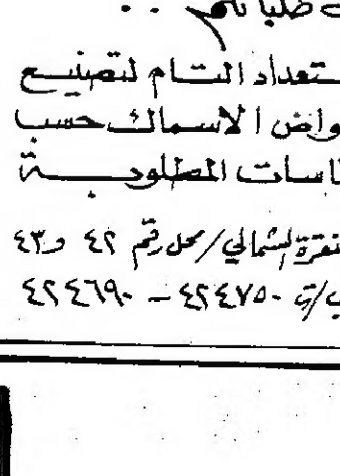 طلباتكم ..
ستعداد التام لتصنيع
واض الاسماك حسب
اسات المطلوبة
نقرة الشمالي / محل رقم ٤٢ و ٤٣
ت / ٤٢٤٧٥٠ - ٤٢٤٦٩٠